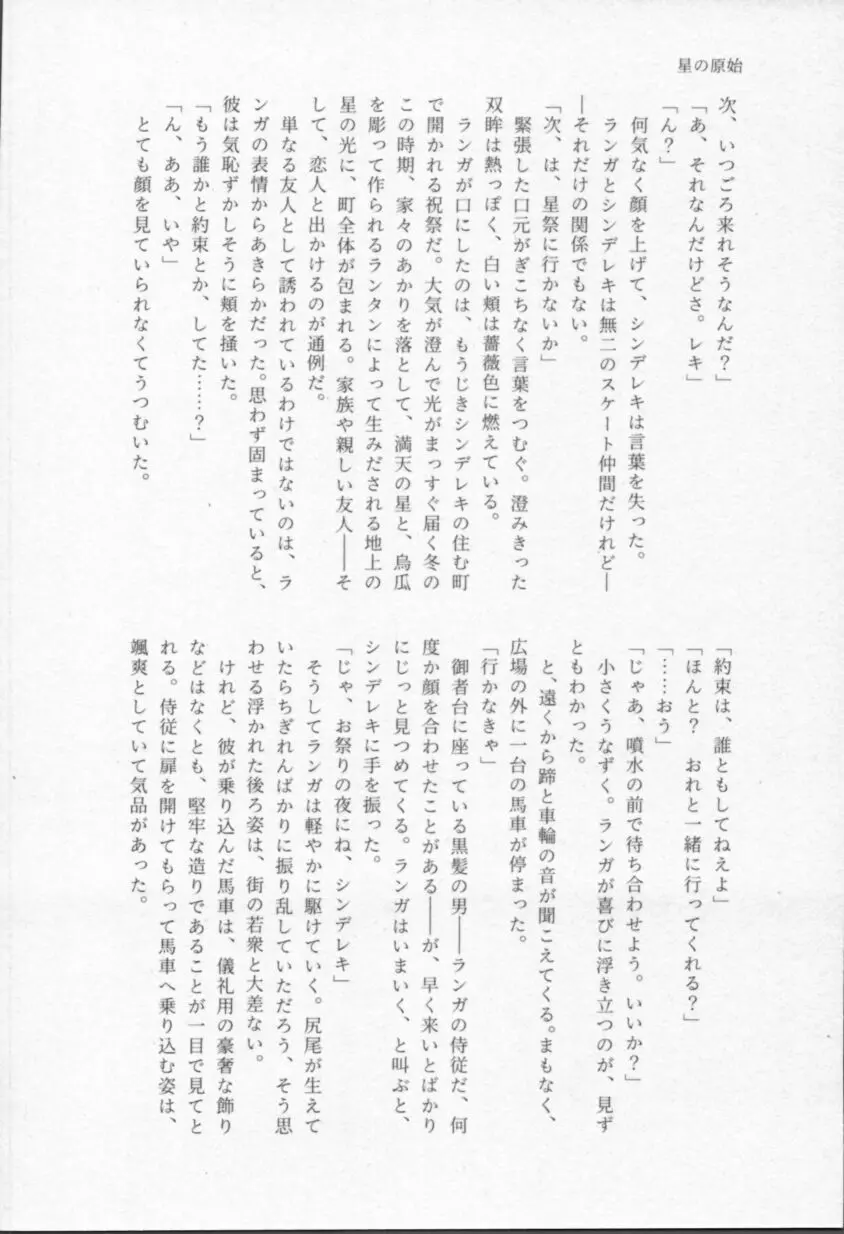 星の原始
次、いつごろ来れそうなんだ？」
「あ、それなんだけどさ。レキ」
「ん？」
　何気なく顔を上げて、シンデレキは言葉を失った。
　ランガとシンデレキは無二のスケート仲間だけれど―
―それだけの関係でもない。
「次、は、星祭に行かないか」
　緊張した口元がぎこちなく言葉をつむぐ。澄みきった
双眸は熱っぽく、白い頬は薔薇色に燃えている。
　ランガが口にしたのは、もうじきシンデレキの住む町
で開かれる祝祭だ。大気が澄んで光がまっすぐ届く冬の
この時期、家々のあかりを落として、満天の星と、烏瓜
を彫って作られるランタンによって生みだされる地上の
星の光に、町全体が包まれる。家族や親しい友人――そ
して、恋人と出かけるのが通例だ。
　単なる友人として誘われているわけではないのは、ラ
ンガの表情からあきらかだった。思わず固まっていると、
彼は気恥ずかしそうに頬を掻いた。
「もう誰かと約束とか、してた……？」
「ん、ああ、いや」
　とても顔を見ていられなくてうつむいた。
「約束は、誰ともしてねえよ」
「ほんと？　おれと一緒に行ってくれる？」
「……おう」
「じゃあ、噴水の前で待ち合わせよう。いいか？」
　小さくうなずく。ランガが喜びに浮き立つのが、見ず
ともわかった。
　と、遠くから蹄と車輪の音が聞こえてくる。まもなく、
広場の外に一台の馬車が停まった。
「行かなきゃ」
　御者台に座っている黒髪の男――ランガの侍従だ、何
度か顔を合わせたことがある――が、早く来いとばかり
にじっと見つめてくる。ランガはいまいく、と叫ぶと、
シンデレキに手を振った。
「じゃ、お祭りの夜にね、シンデレキ」
　そうしてランガは軽やかに駆けていく。尻尾が生えて
いたらちぎれんばかりに振り乱していただろう、そう思
わせる浮かれた後ろ姿は、街の若衆と大差ない。
　けれど、彼が乗り込んだ馬車は、儀礼用の豪奢な飾り
などはなくとも、堅牢な造りであることが一目で見てと
れる。侍従に扉を開けてもらって馬車へ乗り込む姿は、
颯爽としていて気品があった。